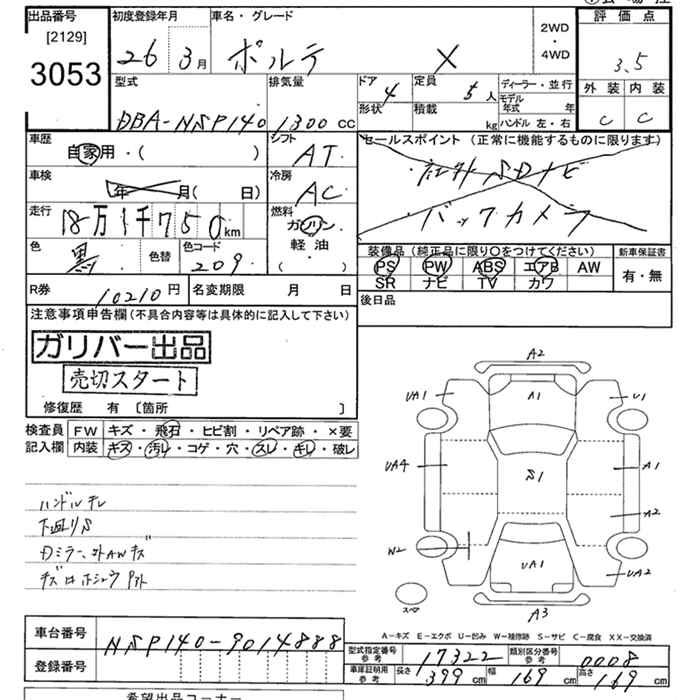 出品番号
[2129]
3053
初度登録年月
26 3月
車名・グレード
ポルテ X
2WD・4WD
評価点
3.5
外装 内装
C C
型式
DBA-NSP140
排気量
1300 cc
ドア 4
形状
定員 5人
積載 kg
ディーラー・並行
モデル年式 年
ハンドル 左・右
車歴
自家用・( )
シフト
AT
セールスポイント (正常に機能するものに限ります)
・社外SDナビ
・バックカメラ
車検
年 月( 日)
冷房
AC
走行
18万1千750km
燃料
ガソリン
軽油・
( )
色
黒
色替
色コード
209
装備品 (純正品に限り○をつけてください)
PS PW ABS エアB AW
SR ナビ TV カワ
新車保証書
有・無
R券
10210円
名変期限 月 日
後日品
注意事項申告欄(不具合内容等は具体的に記入して下さい)
ガリバー出品
売切スタート
修復歴 有 [箇所 ]
検査員記入欄
FW キズ・飛石・ヒビ割・リペア跡・×要
内装 キズ・汚レ・コゲ・穴・スレ・キレ・破レ
ハンドルチレ
下廻りS
Dミラー、外AWキズ
A2
UA1 A1 U1
UA4 S1 A1
A2
W2 UA1 UA2
スペア A3
A-キズ E-エクボ U-凹み W-補修跡 S-サビ C-腐食 XX-交換済
車台番号
NSP140-9014888
登録番号
型式指定番号 参考
17322
類別区分番号 参考
0008
車庫証明用 参考
長さ 399cm 幅 169cm 高さ 169cm
希望出品コーナー